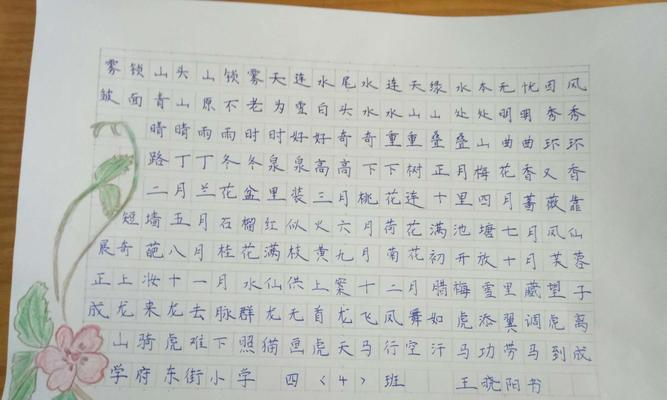 雾锁山头山锁雾天连水尾水连天绿水本无忧因风
皱面青山原不老为雪白头水水山山处处明明秀秀
晴晴雨雨时时好好奇奇重重叠叠山曲曲环环
路丁丁冬冬泉泉高高下下树正月梅花香又香
二月兰花盆里装三月桃花连十里四月蔷薇靠
短墙五月石榴红似火六月荷花满池塘七月凤仙
展奇葩八月桂花满枝黄九月菊花初开放十月芙蓉
正上妆十一月水仙供上案十二月腊梅雪里藏望子
成龙来龙去脉群龙无首龙飞凤舞如虎添翼调虎离
山骑虎难下照猫画虎天马行空汗马功劳马到成
学府东街小学 四〈4〉班 王晓阳书